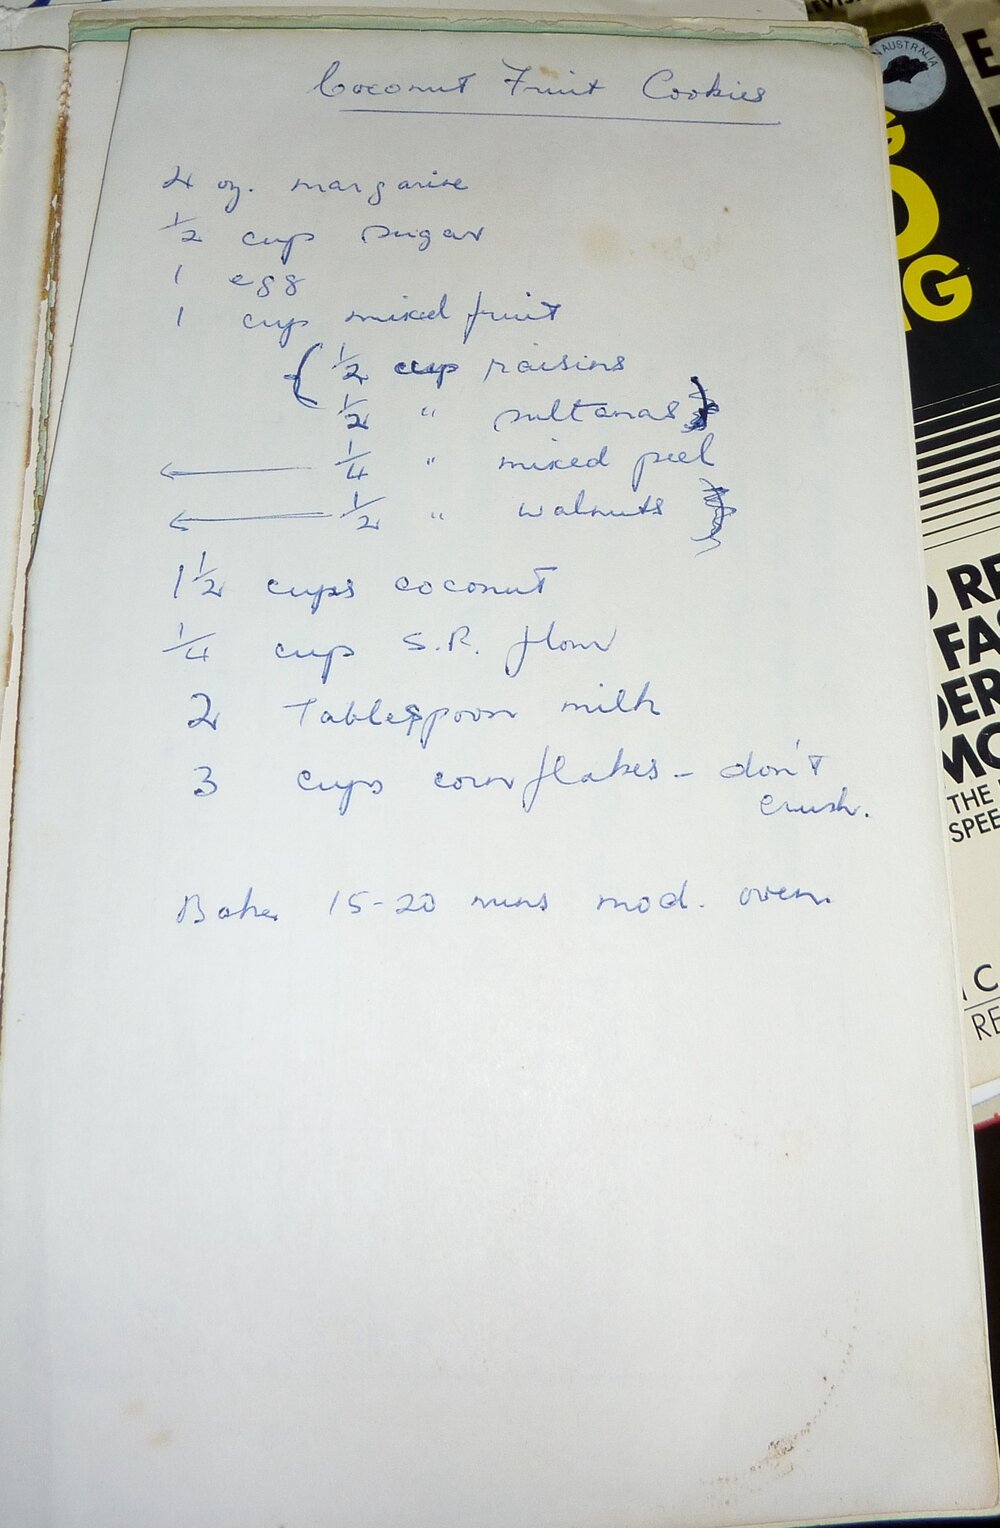 Coconut Fruit Cookies
4 oz. margarine
1/2 cup sugar
1 egg
1 cup mixed fruit
1/2 cup raisins
1/2 " sultanas
1/4 " mixed peel
1/2 " walnuts
1 1/2 cups coconut
1/4 cup S.R. flour
2 Tablespoon milk
3 cups cornflakes - don't
crush.
Bake 15-20 mins mod. oven.
AUSTRALIA
G
O
NG
RE
FA
DER
MO
THE
SPEE
C
RE